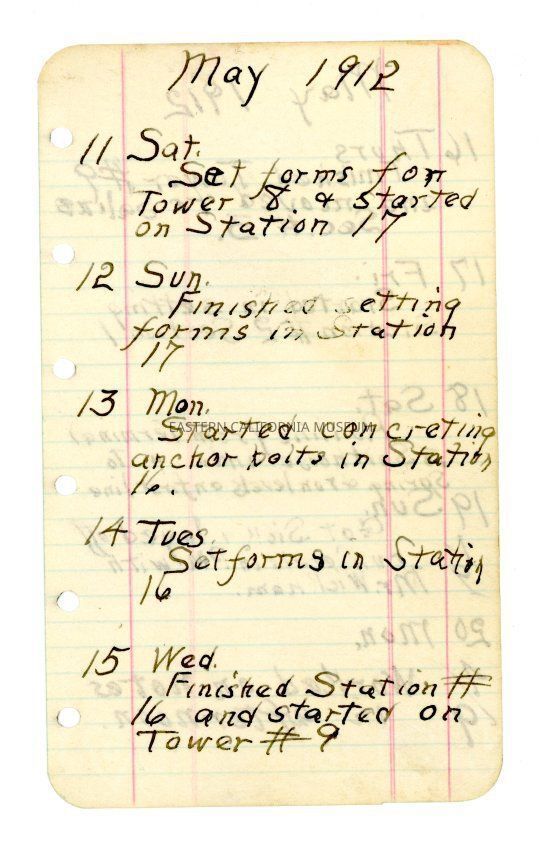 May 1912
11 Sat.
Set forms for
Tower 8. & started
on Station 17
12 Sun.
Finished setting
forms in Station
17
13 Mon.
EASTERN CALIFORNIA MUSEUM
Started concreting
anchor bolts in Station
16.
14 Tues.
Set forms in Station
16
15 Wed.
Finished Station #
16 and started on
Tower # 9